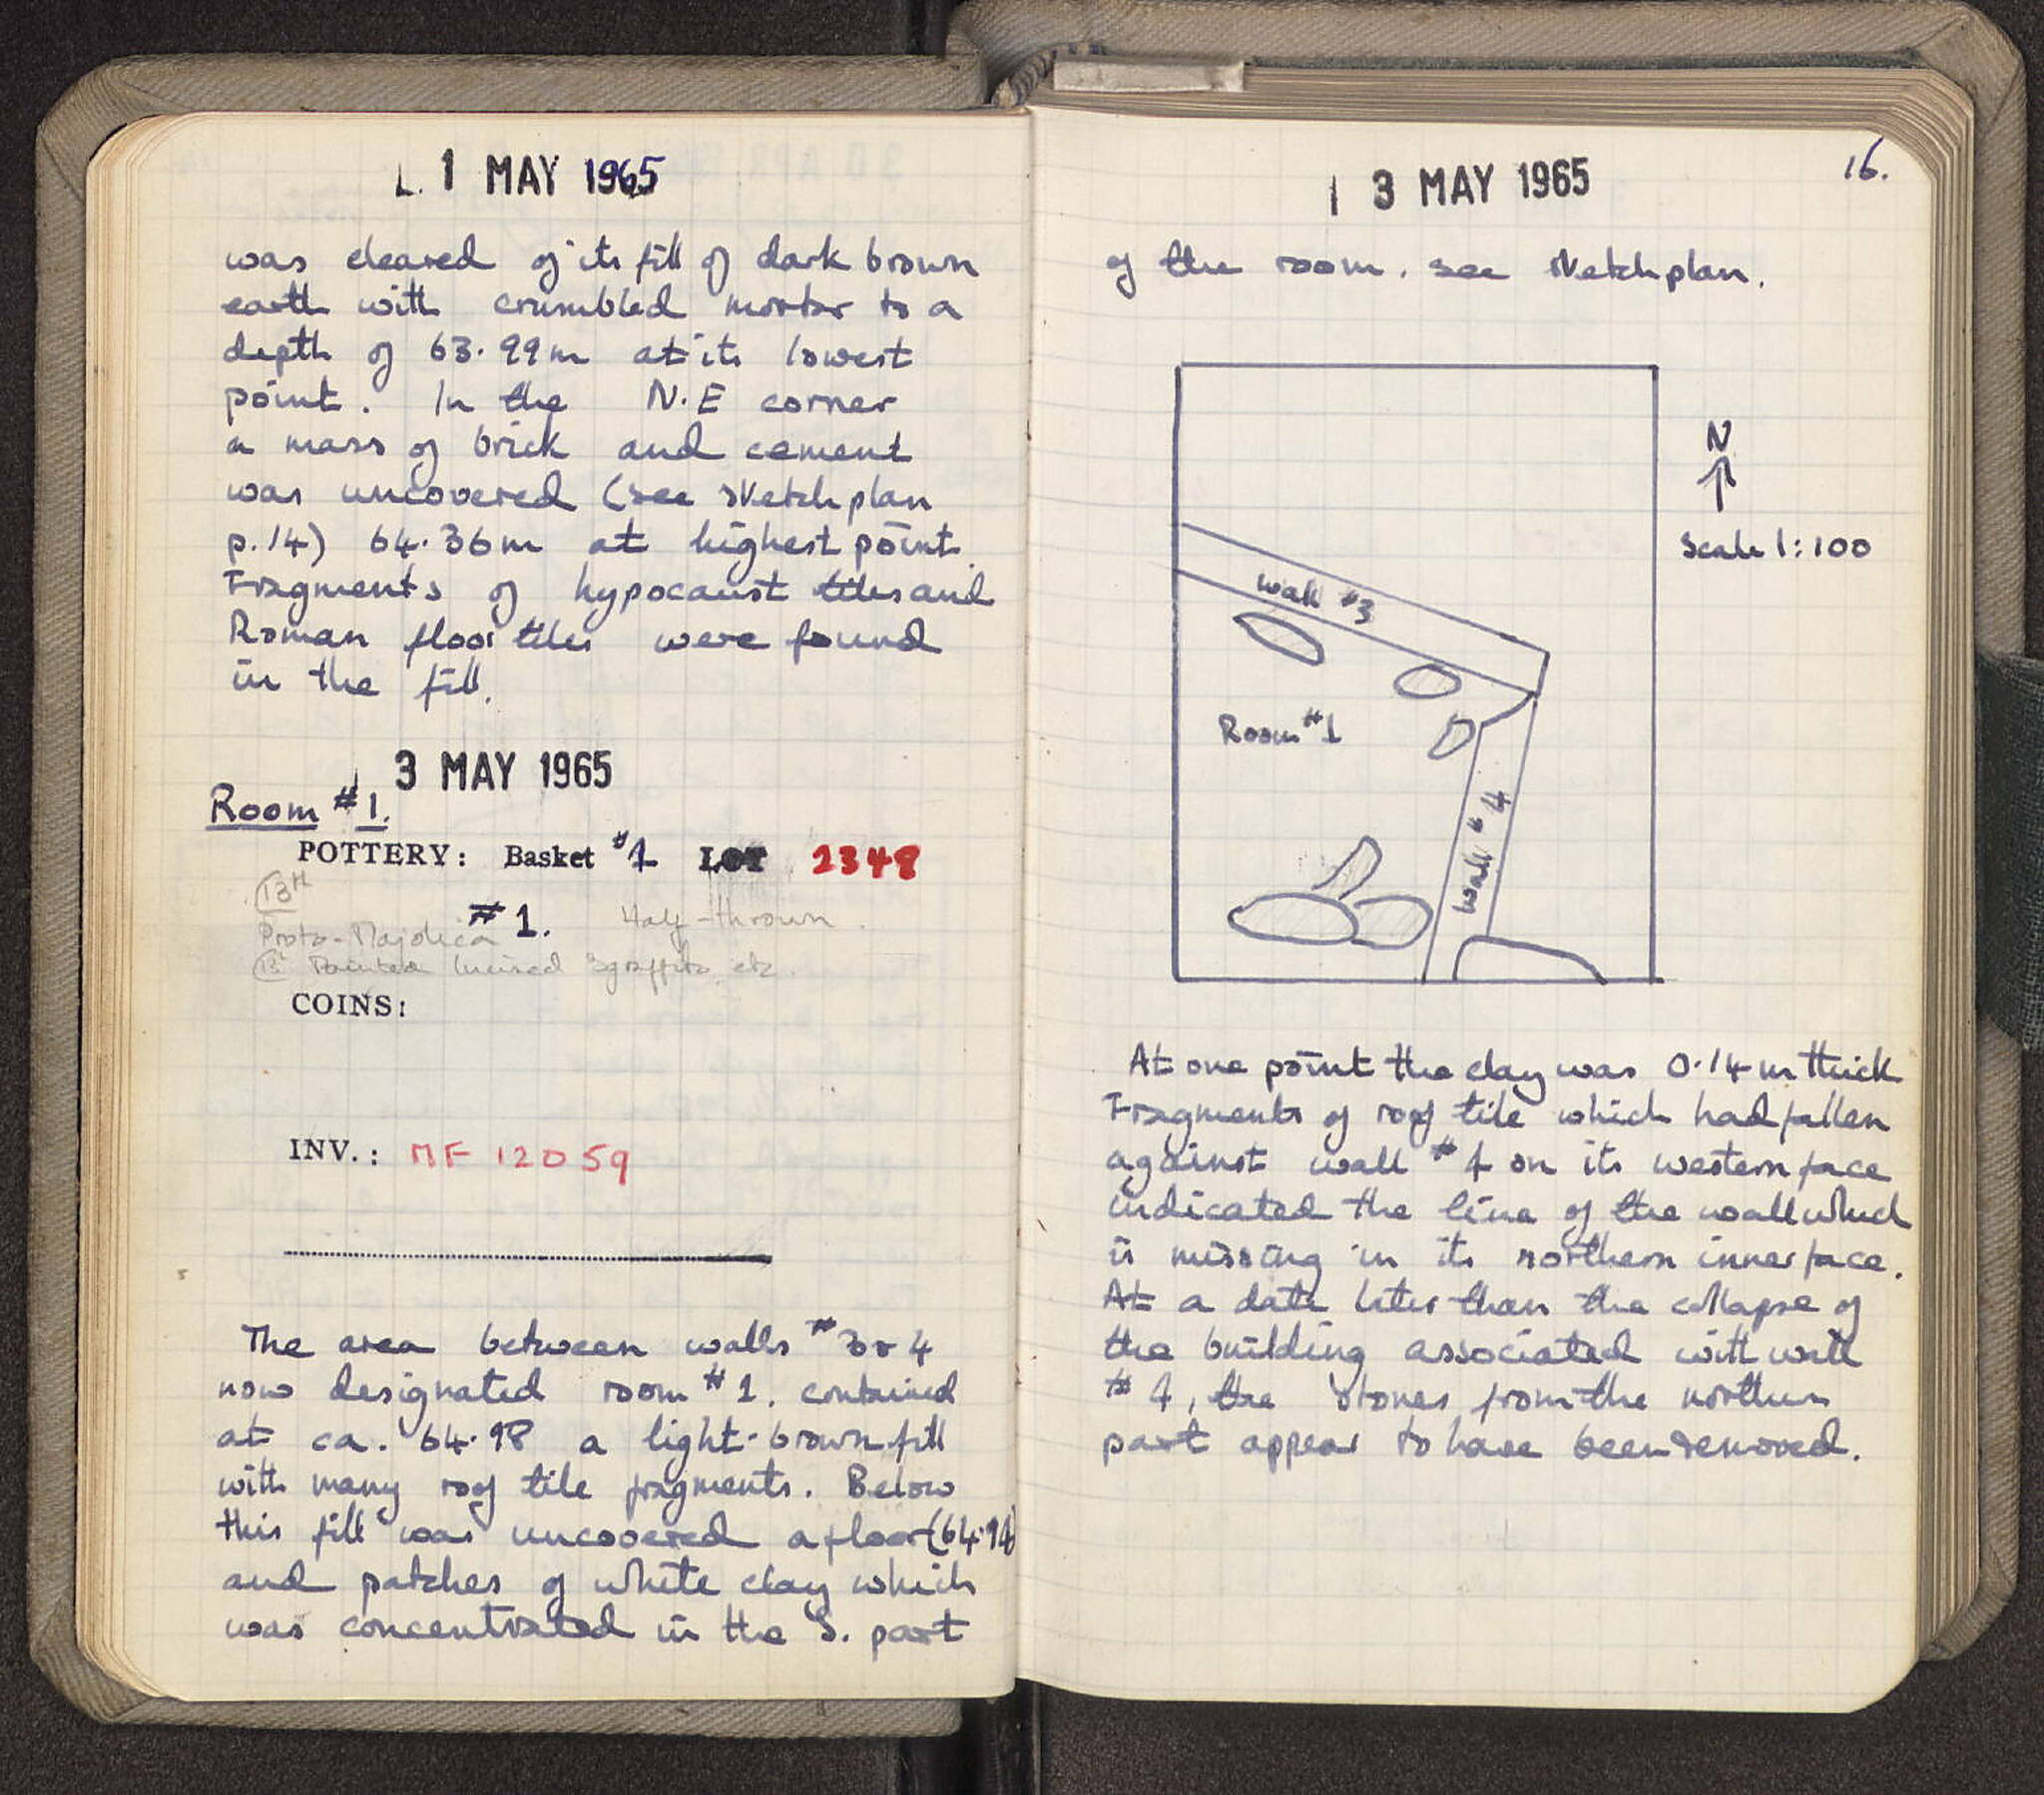 1 MAY 1965
was cleared of its fill of dark brown
earth with crumbled mortar to a
depth of 63.99m at its lowest
point. In the N.E corner
a mass of brick and cement
was uncovered (see sketch plan
p.14) 64.36m at highest point.
Fragments of hypocaust tiles and
Roman floor tiles were found
in the fill.
3 MAY 1965
Room #1.
POTTERY: Basket #1 LOT 2348
13th
#1. Half-thrown.
Proto-Majolica
Painted Incised Sgraffito etc.
COINS:
INV.: MF 12059
The area between walls #3 & 4
now designated room #1. contained
at ca. 64.98 a light-brown fill
with many roof tile fragments. Below
this fill was uncovered a floor (64.94)
and patches of white clay which
was concentrated in the S. part
16.
3 MAY 1965
of the room. see sketch plan.
N
Scale 1:100
wall #3
Room #1
wall #4
At one point the clay was 0.14m thick
Fragments of roof tile which had fallen
against wall #4 on its western face
indicated the line of the wall which
is missing in its northern inner face.
At a date later than the collapse of
the building associated with wall
#4, the stones from the northern
part appear to have been removed.